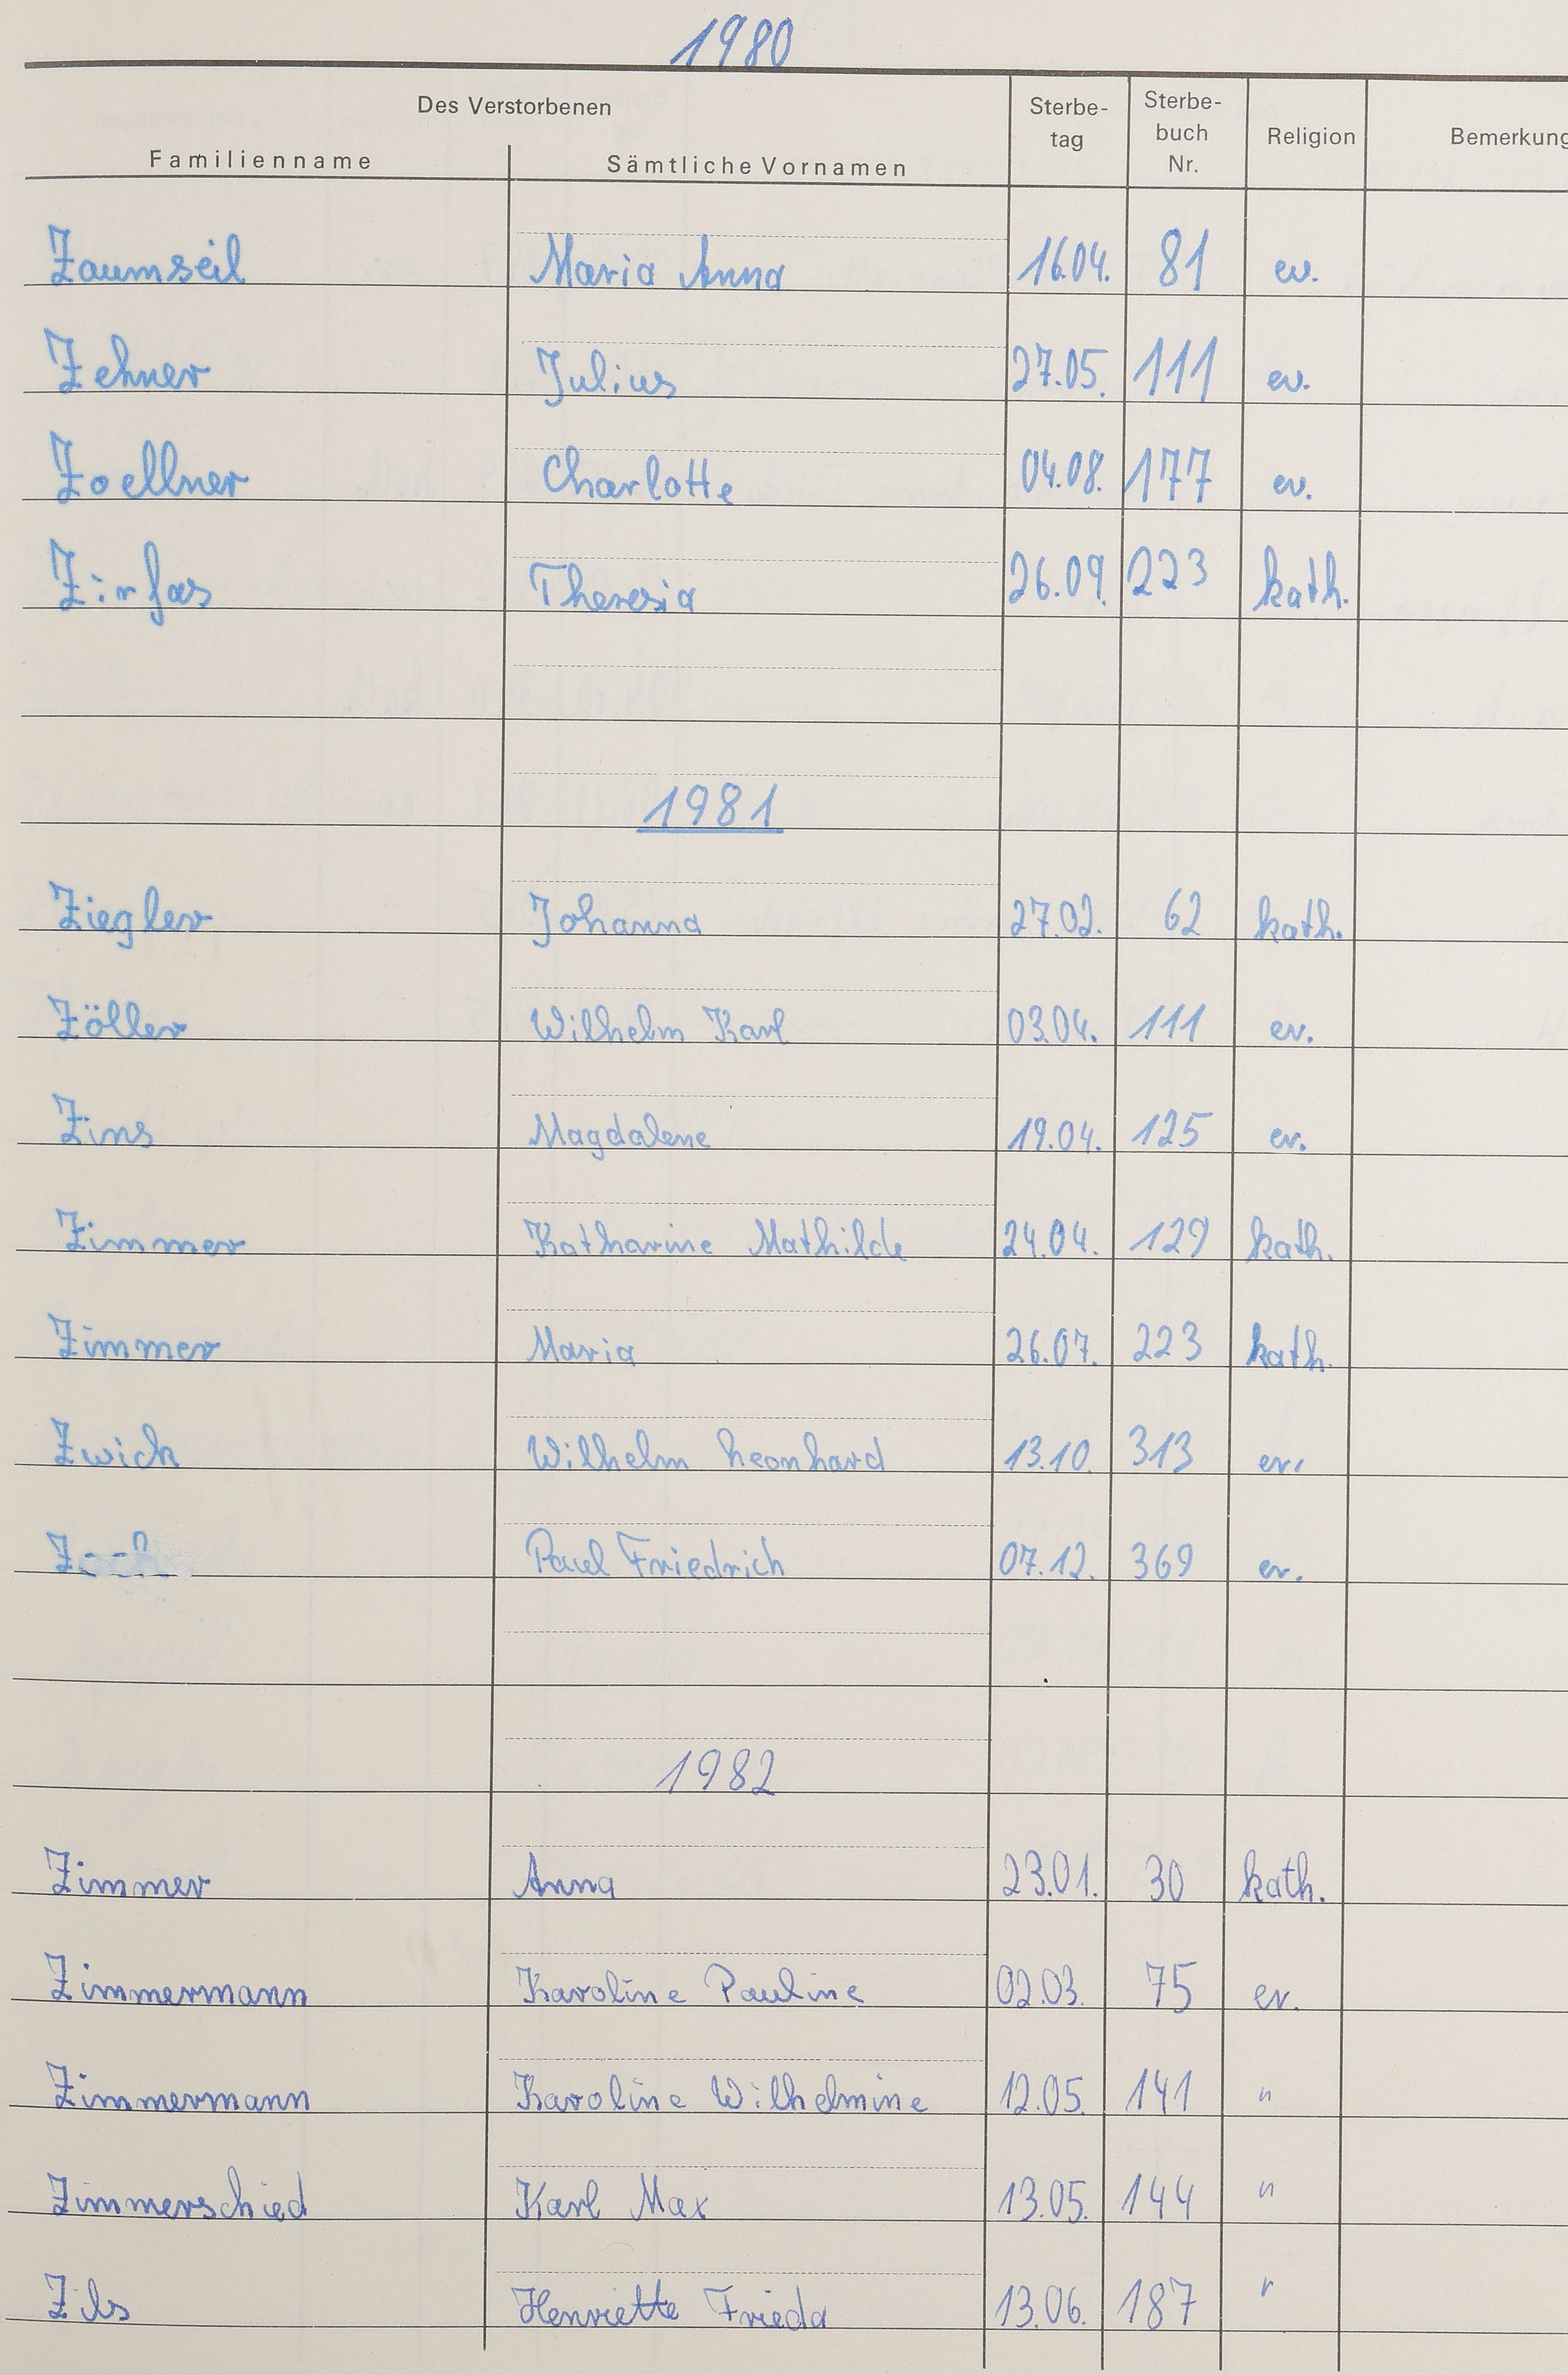 1980
Des Verstorbenen
Familienname Sämtliche Vornamen Sterbe-tag Sterbe-buch Nr. Religion Bemerkung
Zaumseil Maria Anna 16.04. 81 ev.
Zehner Julius 27.05. 111 ev.
Zoellner Charlotte 04.08. 177 ev.
Zirfas Theresia 26.09. 223 kath.
1981
Ziegler Johanna 27.02. 62 kath.
Zöller Wilhelm Karl 03.04. 111 ev.
Zins Magdalene 19.04. 125 ev.
Zimmer Katharine Mathilde 24.04. 129 kath.
Zimmer Maria 26.07. 223 kath.
Zwick Wilhelm Leonhard 13.10. 313 ev.
Paul Friedrich 07.12. 369 ev.
1982
Zimmer Anna 23.01. 30 kath.
Zimmermann Karoline Pauline 02.03. 75 ev.
Zimmermann Karoline Wilhelmine 12.05. 141 "
Zimmerschied Karl Max 13.05. 144 "
Zils Henriette Frieda 13.06. 187 "